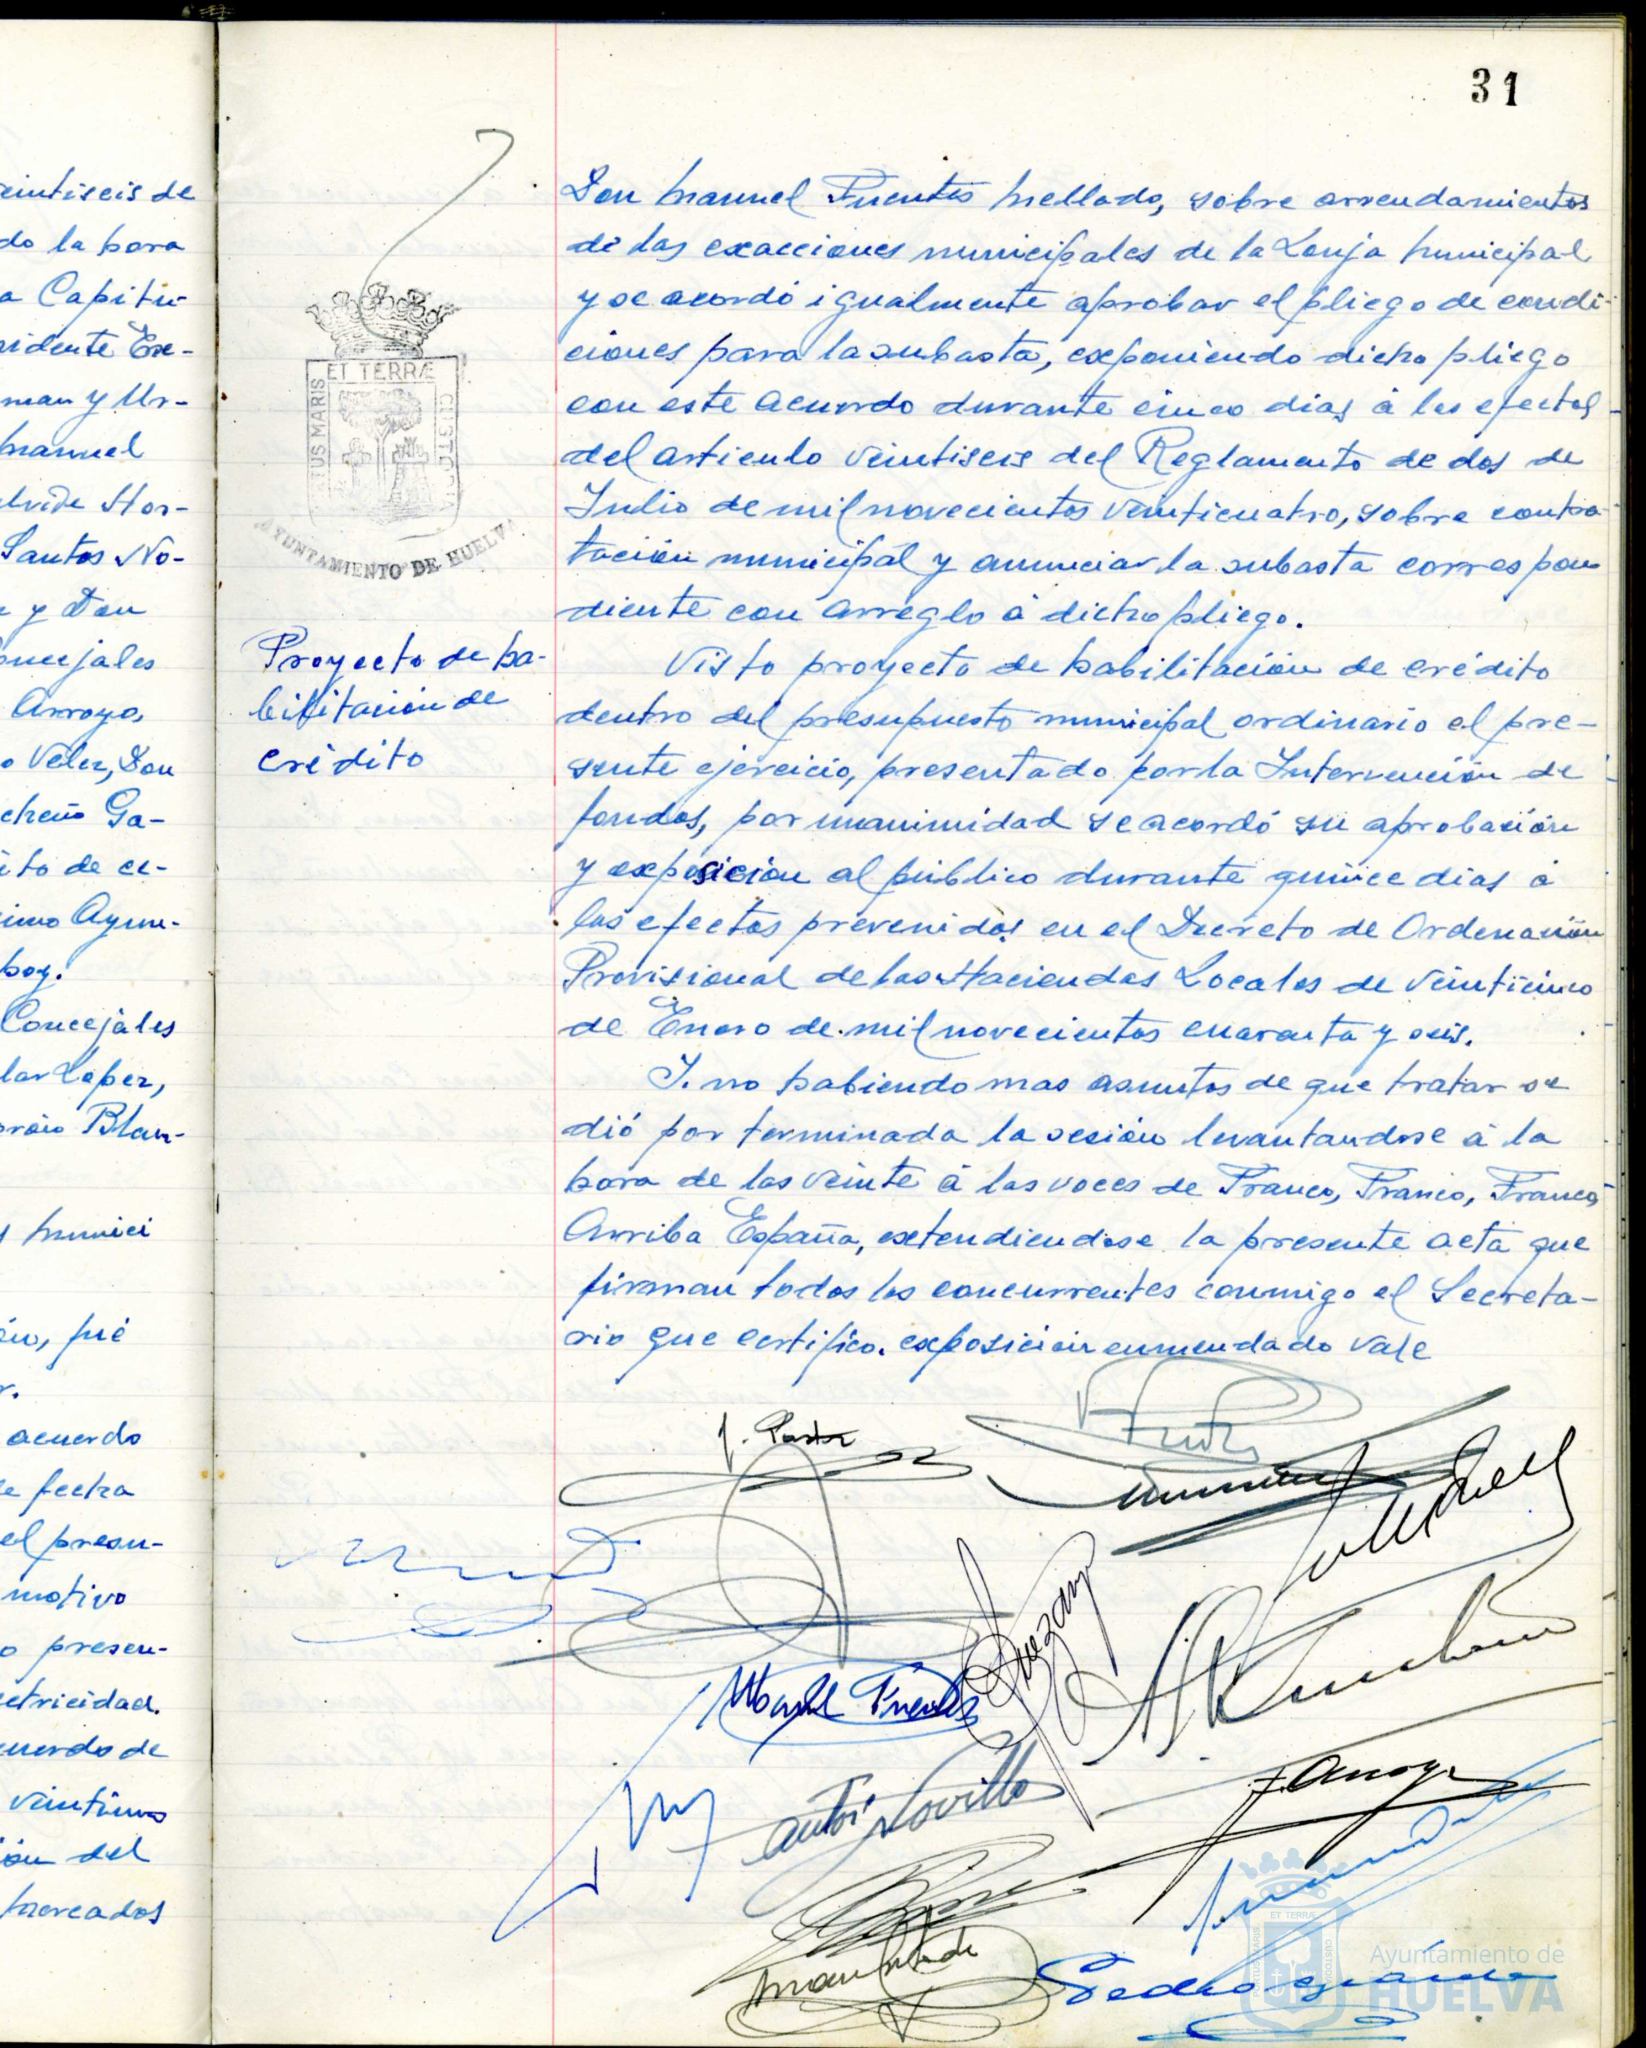 31
eintiseis de
do la hora
a Capitu-
sidente Exc-
man y Ur-
Manuel
lvide Hor-
Santos No-
y Don
oncejales
Arroyo,
o Velez, Don
cheño Ga-
ito de ce-
imo Ayun-
hoy.
Concejales
lar Lopez,
Blan-
Munici
ón, fué
r.
acuerdo
e fecha
el presu-
motivo
o presen-
ectricidad.
cuerdo de
veintiuno
ión del
Mercados
ET TERRÆ
PORTUS MARIS
CUSTODIA
AYUNTAMIENTO DE HUELVA
Proyecto de ha-
bilitación de
crédito
Don Manuel Fuentes Mellado, sobre arrendamientos
de las exacciones municipales de la Lonja Municipal
y se acordó igualmente aprobar el pliego de condi-
ciones para la subasta, exponiendo dicho pliego
con este acuerdo durante cinco dias á los efectos
del articulo veintiseis del Reglamento de dos de
Julio de mil novecientos veinticuatro, sobre contra-
tación municipal y anunciar la subasta correspon
diente con arreglo á dicho pliego.
Visto proyecto de habilitación de crédito
dentro del presupuesto municipal ordinario el pre-
sente ejercicio, presentado por la Intervención de
fondos, por unanimidad se acordó su aprobación
y exposición al público durante quince dias á
los efectos prevenidos en el Decreto de Ordenación
Provisional de las Haciendas Locales de veinticinco
de Enero de mil novecientos cuarenta y seis.
Y no habiendo mas asuntos de que tratar se
dió por terminada la sesión levantandose á la
hora de las veinte á las voces de Franco, Franco, Franco,
Arriba España, extendiendose la presente acta que
firman todos los concurrentes conmigo el Secreta-
rio que certifico. exposición enmendado vale
Manuel Fuentes
F. Arroyo
Ayuntamiento de
HUELVA